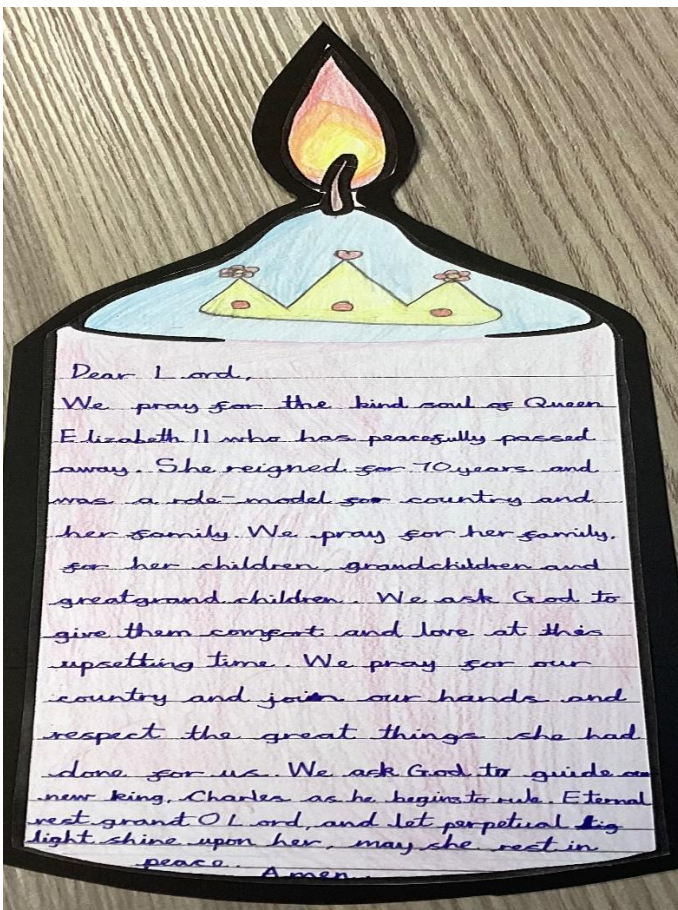 Dear Lord,
We pray for the kind soul of Queen
Elizabeth II who has peacefully passed
away. She reigned for 70 years and
was a role-model for country and
her family. We pray for her family,
for her children, grandchildren and
greatgrand children. We ask God to
give them comfort and love at this
upsetting time. We pray for our
country and join our hands and
respect the great things she had
done for us. We ask God to guide our
new king, Charles as he begins to rule. Eternal
rest grant O Lord, and let perpetual
light shine upon her, may she rest in
peace.
Amen.